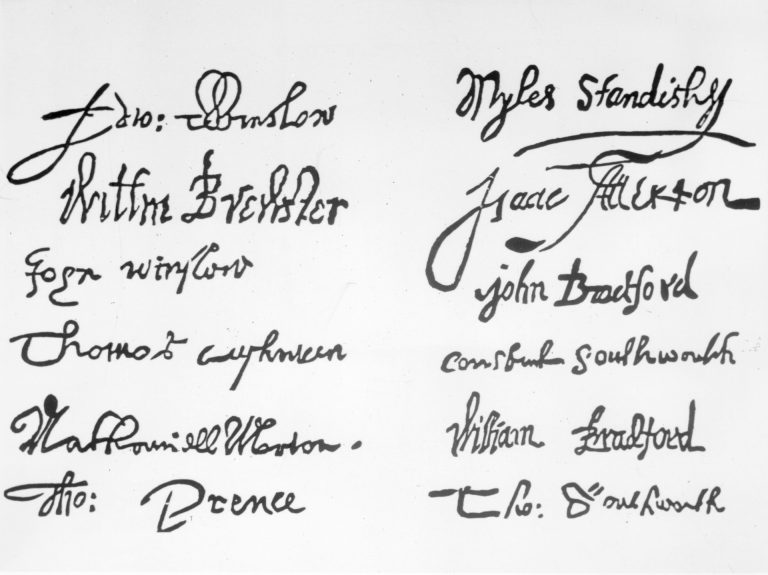 Edw: Winslow
Willm Brewster
John Winslow
Thomas Cushman
Nathaniell Morton.
Tho: Prence
Myles Standish
Isaac Allerton
john Bradford
constant Southworth
William Bradford
Tho: Southworth